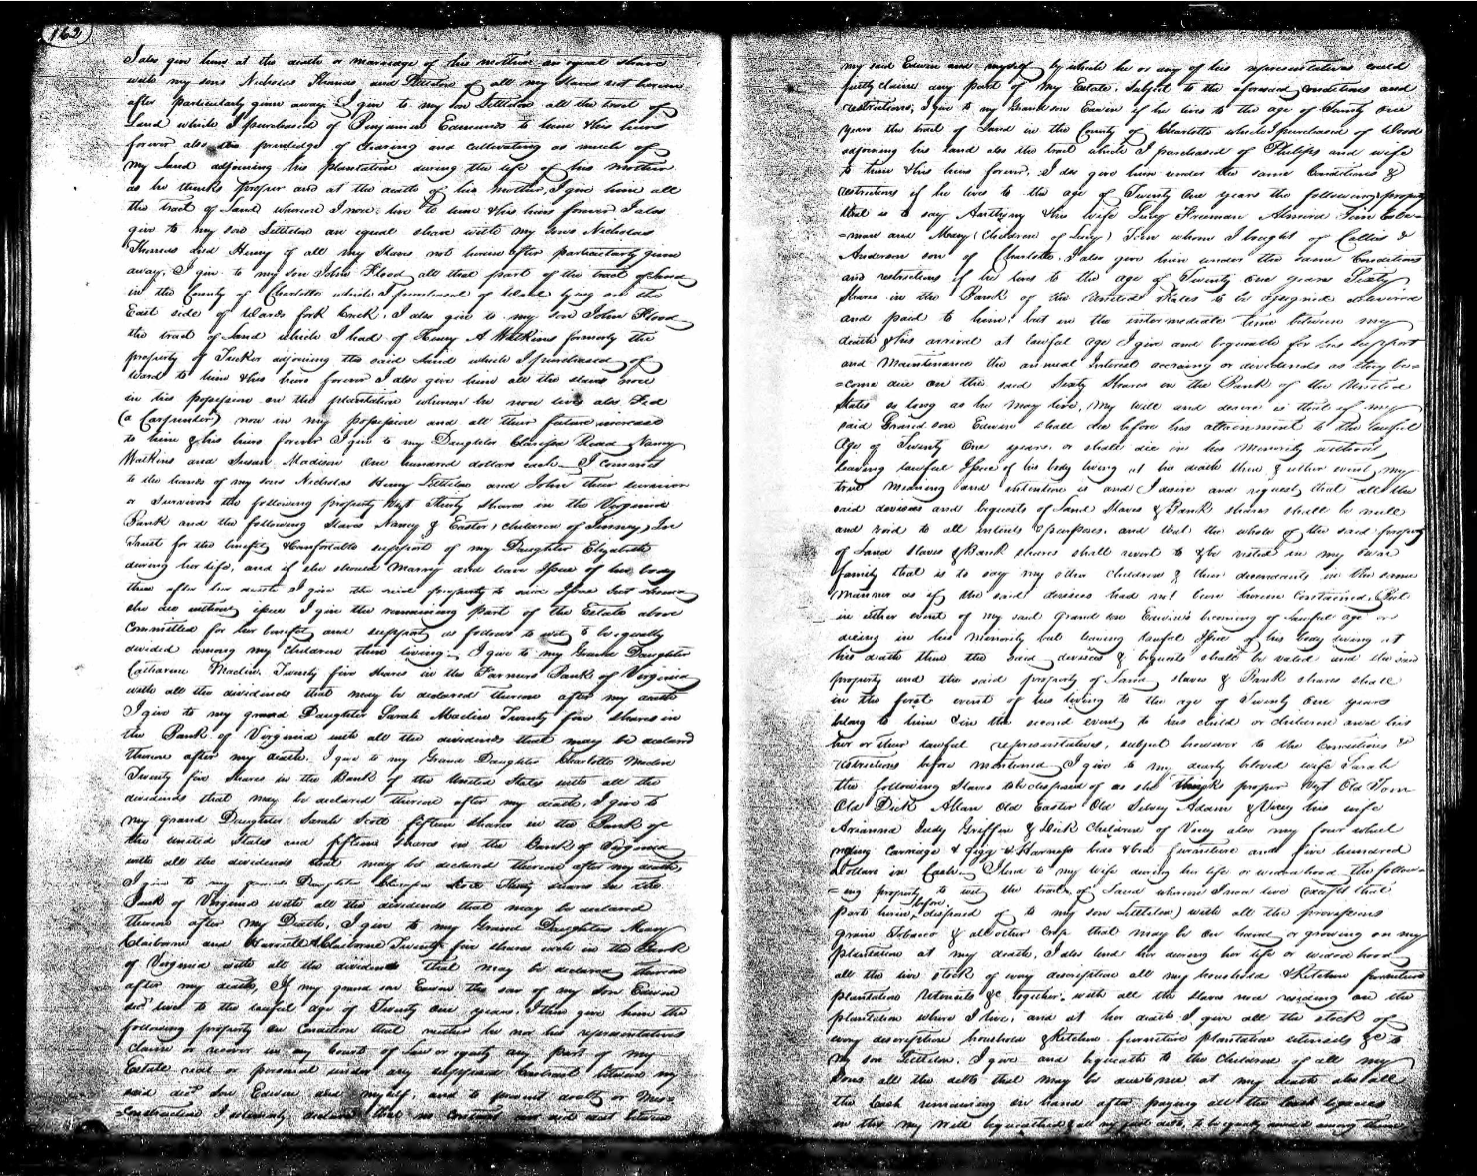 162
I also give him at the death or marriage of his mother an equal share
with my sons Nicholas Thomas and Littleton of all my slaves not herein
after particularly given away. I give to my son Littleton all the tract of
Land which I purchased of Benjamin Edmunds to him & his heirs
forever also the priviledge of clearing and cultivating as much of
my Land adjoining his plantation during the life of his mother
as he thinks proper and at the death of his mother, I give him all
the tract of Land whereon I now live to him & his heirs forever I also
give to my son Littleton an equal share with my sons Nicholas
Thomas and Henry of all my slaves not herein after particularly given
away. I give to my son John Flood all that part of the tract of Land
in the County of Charlotte which I purchased of Ward lying on the
East side of Wards fork Creek. I also give to my son John Flood
the tract of Land which I had of Henry A Watkins formerly the
property of Tucker adjoining the said Land which I purchased of
Ward to him & his heirs forever I also give him all the slaves now
in his possession on the plantation whereon he now lives also
(a Carpenter) now in my possession and all their future increase
to him & his heirs forever I give to my Daughter Clarissa Read Nancy
Watkins and Susan Madison One hundred dollars each. I commit
to the hands of my sons Nicholas Henry Littleton and John their survivor
or survivors the following property Vizt Thirty shares in the Virginia
Bank and the following Slaves Nancy & Easter, (children of) In
Trust for the benefit & comfortable support of my Daughter Elizabeth
during her life, and if she should marry and leave Issue of her body
then after her death I give the said property to said Issue but should
she die without issue I give the remaining part of the Estate above
committed for her benefit and support as follows to wit to be equally
divided among my children then living. I give to my Grand Daughter
Catharine Twenty five shares in the Farmers Bank of Virginia
with all the dividends that may be declared thereon after my death
I give to my grand Daughter Sarah Twenty five shares in
the Bank of Virginia with all the dividends that may be declared
thereon after my death. I give to my Grand Daughter Charlotte
Twenty five shares in the Bank of the United States with all the
dividends that may be declared thereon after my death. I give to
my grand Daughter Sarah Scott fifteen shares in the Bank of
the united States and fifteen shares in the Bank of Virginia
with all the dividends that may be declared thereon after my death,
I give to my grand Daughter Thirty shares in the
Bank of Virginia with all the dividends that may be declared
thereon after my Death. I give to my Grand Daughters Mary
Claiborne and Harriett Claiborne Twenty five shares each in the Bank
of Virginia with all the dividends that may be declared thereon
after my death, If my grand son Edwin the son of my son Edwin
decd. live to the lawful age of Twenty one years. I then give him the
following property on Condition that neither he nor his representatives
claim or recover in any Court of Law or equity any part of my
Estate real or personal under any supposed Contract between my
said decd. son Edwin and myself and to prevent doubt or Mis-
-construction I solemnly declare that no Contract was ever between
my said Edwin and myself by which he or any of his representatives could
justly claim any part of my Estate. Subject to the aforesaid Conditions and
restrictions, I give to my Grand son Edwin if he lives to the age of Twenty one
years the tract of Land in the County of Charlotte which I purchased of Wood
adjoining his land also the tract which I purchased of Philips and wife
to him & his heirs forever. I also give him under the same Conditions &
restrictions if he lives to the age of Twenty One years the following property
that is to say Anthony & his wife Lucy Freeman Almira
and Mary (Children of Lucy) Tom whom I bought of Collins &
Anderson son of Charlotte. I also give him under the same Conditions
and restrictions if he lives to the age of Twenty one years Sixty
Shares in the Bank of the United States to be assigned
and paid to him: but in the intermediate time between my
death & his arrival at lawful age I give and bequeath for his support
and Maintenance the annual Interest accruing or dividends as they be-
-come due on the said Sixty Shares in the Bank of the United
States so long as he may live, My will and desire is that if my
said Grand son Edwin shall die before his attainment to the lawful
age of Twenty One years, or shall die in his Minority without
leaving lawful Issue of his body living at his death then & in either event, my
true meaning and intention is and I desire and request that all the
said devises and bequests of Land Slaves & Bank shares shall be null
and void to all intents & purposes. and that the whole of the said property
of Land Slaves & Bank shares shall revert to & be vested in my own
family that is to say my other children & their descendants in the same
Manner as if the said devises had not been herein contained. But
in either event of my said Grand son Edwin's becoming of lawful age or
dieing in his Minority but leaving lawful Issue of his body living at
his death then the said devises & bequests shall be valid and the said
property and the said property of Land, slaves & Bank shares shall
in the first event of his living to the age of Twenty One years
belong to him & in the second event, to his child or children and his
her or their lawful representatives, subject however to the Conditions &
restrictions before mentioned. I give to my dearly beloved wife Sarah
the following Slaves to be disposed of as she think proper Vizt Old Tom
Old Dick Allan Old Easter Old Silvey Adam & Vicey his wife
Arianna Judy Griffin & Dick Children of Vicey also my four wheel
riding Carriage & Gigg & Harness beds & bed furniture and five hundred
Dollars in Cash. I lend to my wife during her life or widowhood the follow-
-ing property to wit, the tract of Land whereon I now live (except that
part herein before disposed of to my son Littleton) with all the provisions
grain Tobacco & all other Crop that may be on hand or growing on my
plantation at my death, I also lend her during her life or widowhood
all the live stock of every description all my household & Kitchen furniture
plantation Utensils &c together with all the slaves now residing on the
plantation where I live, and at her death I give all the stock of
every description household & Kitchen furniture plantation utensils &c to
my son Littleton. I give and bequeath to the children of all my
Sons all the debts that may be due to me at my death also all
the Cash remaining on hand after paying all the Cash legacies
in this my Will bequeathed & all my just debts, to be equally divided among them